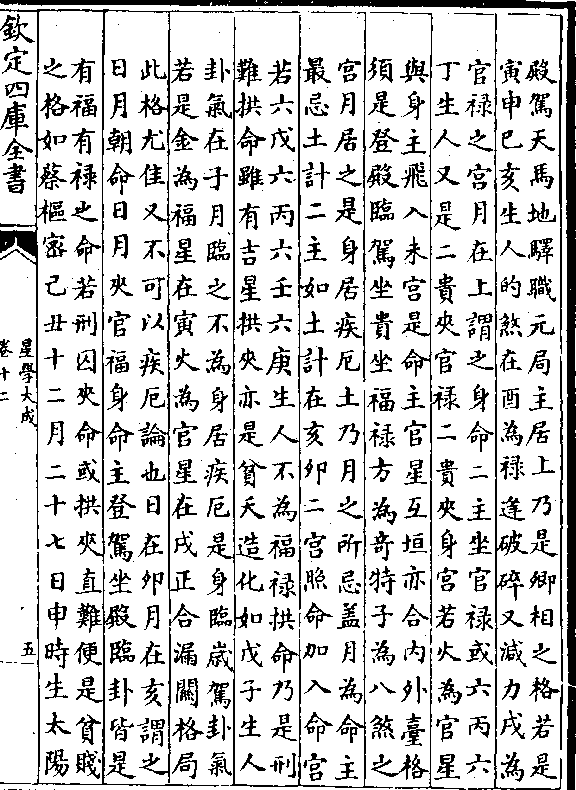 殿駕天馬地驛職元局主居上乃是卿相之格若是
寅申巳亥生人的煞在酉為祿逢破碎又減力戌為
官祿之宮月在上謂之身命二主坐官祿或六丙六
丁生人又是二貴夾官祿二貴夾身宮若火為官星
與身主飛入未宮是命主官星互垣亦合内外臺格
須是登殿臨駕坐貴坐福祿方為竒特子為八煞之
宮月居之是身居疾厄土乃月之所忌盖月為命主
最忌土計二主如土計在亥夘二宮照命加入命宮
若六戊六丙六壬六庚生人不為福祿拱命乃是刑
難拱命雖有吉星拱夾亦是貧夭造化如戊子生人
卦氣在子月臨之不為身居疾厄是身臨嵗駕卦氣
若是金為福星在寅火為官星在戌正合漏關格局
此格尤佳又不可以疾厄論也日在夘月在亥謂之
日月朝命日月夾官福身命主登駕坐殿臨卦皆是
有福有祿之命若刑囚夾命或拱夾直難便是貧賤
之格如蔡樞密己丑十二月二十七日申時生太陽
欽定四庫全書
星學大成
卷十二
五